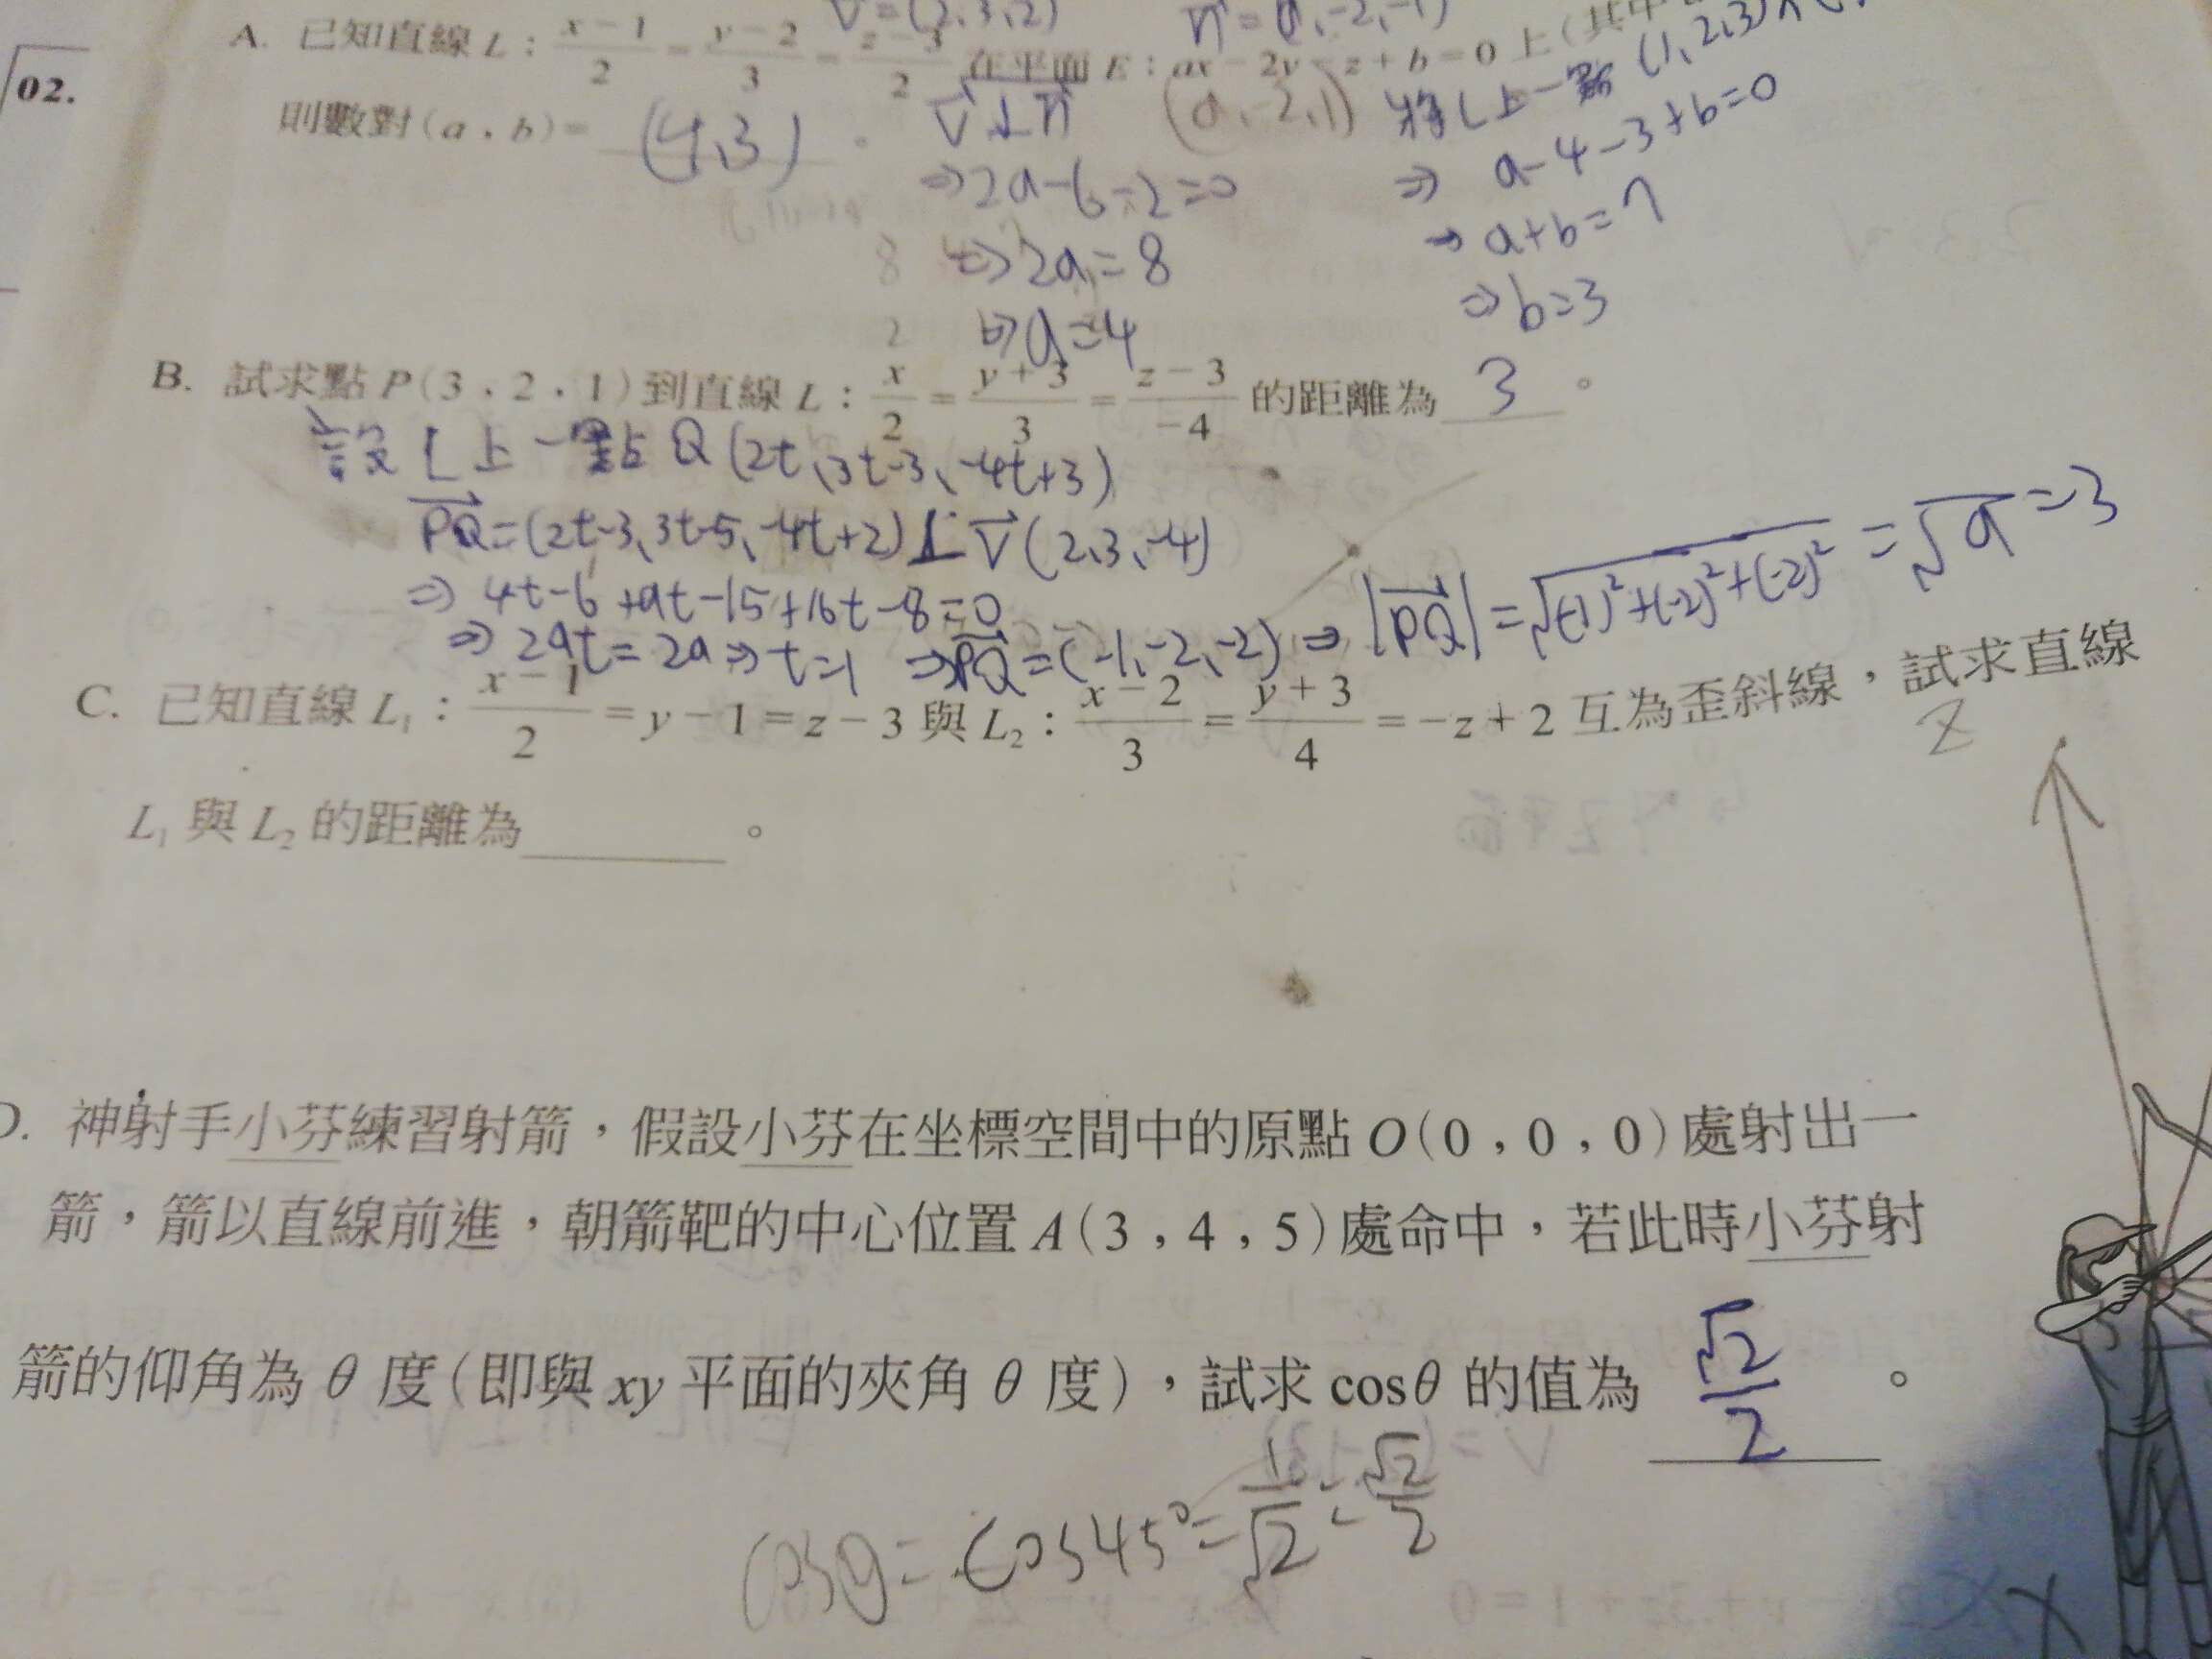 02.
V=(2,3,2) n=(a,-2,-1)
A. 已知直線 L : x-1/2 = y-2/3 = z-3/2 在平面 E : ax-2y-z+b=0 上(其中
則數對(a,b)= (4,3)。
V⊥n
⇒2a-6-2=0
⇒2a=8
⇒a=4
(a,-2,1)
將L上一點(1,2,3)
⇒ a-4-3+b=0
→ a+b=7
⇒b=3
B. 試求點 P(3,2,1) 到直線 L : x/2 = y+3/3 = z-3/-4 的距離為 3 。
設 L上一點 Q(2t、3t-3、-4t+3)
PQ=(2t-3、3t-5、-4t+2)⊥V(2,3,-4)
⇒ 4t-6+9t-15+16t-8=0
⇒ 29t=29⇒t=1 ⇒PQ=(-1,-2,-2) ⇒ |PQ|=√(-1)²+(-2)²+(-2)² = √9 =3
C. 已知直線 L₁ : x-1/2 = y-1=z-3 與 L₂ : x-2/3 = y+3/4 = -z+2 互為歪斜線,試求直線
L₁ 與 L₂ 的距離為 。
z
D. 神射手小芬練習射箭,假設小芬在坐標空間中的原點 O(0,0,0) 處射出一
箭,箭以直線前進,朝箭靶的中心位置 A(3,4,5) 處命中,若此時小芬射
箭的仰角為 θ 度(即與 xy 平面的夾角 θ 度),試求 cosθ 的值為 √2/2 。
cosθ=cos45°=1/√2=√2/2
x